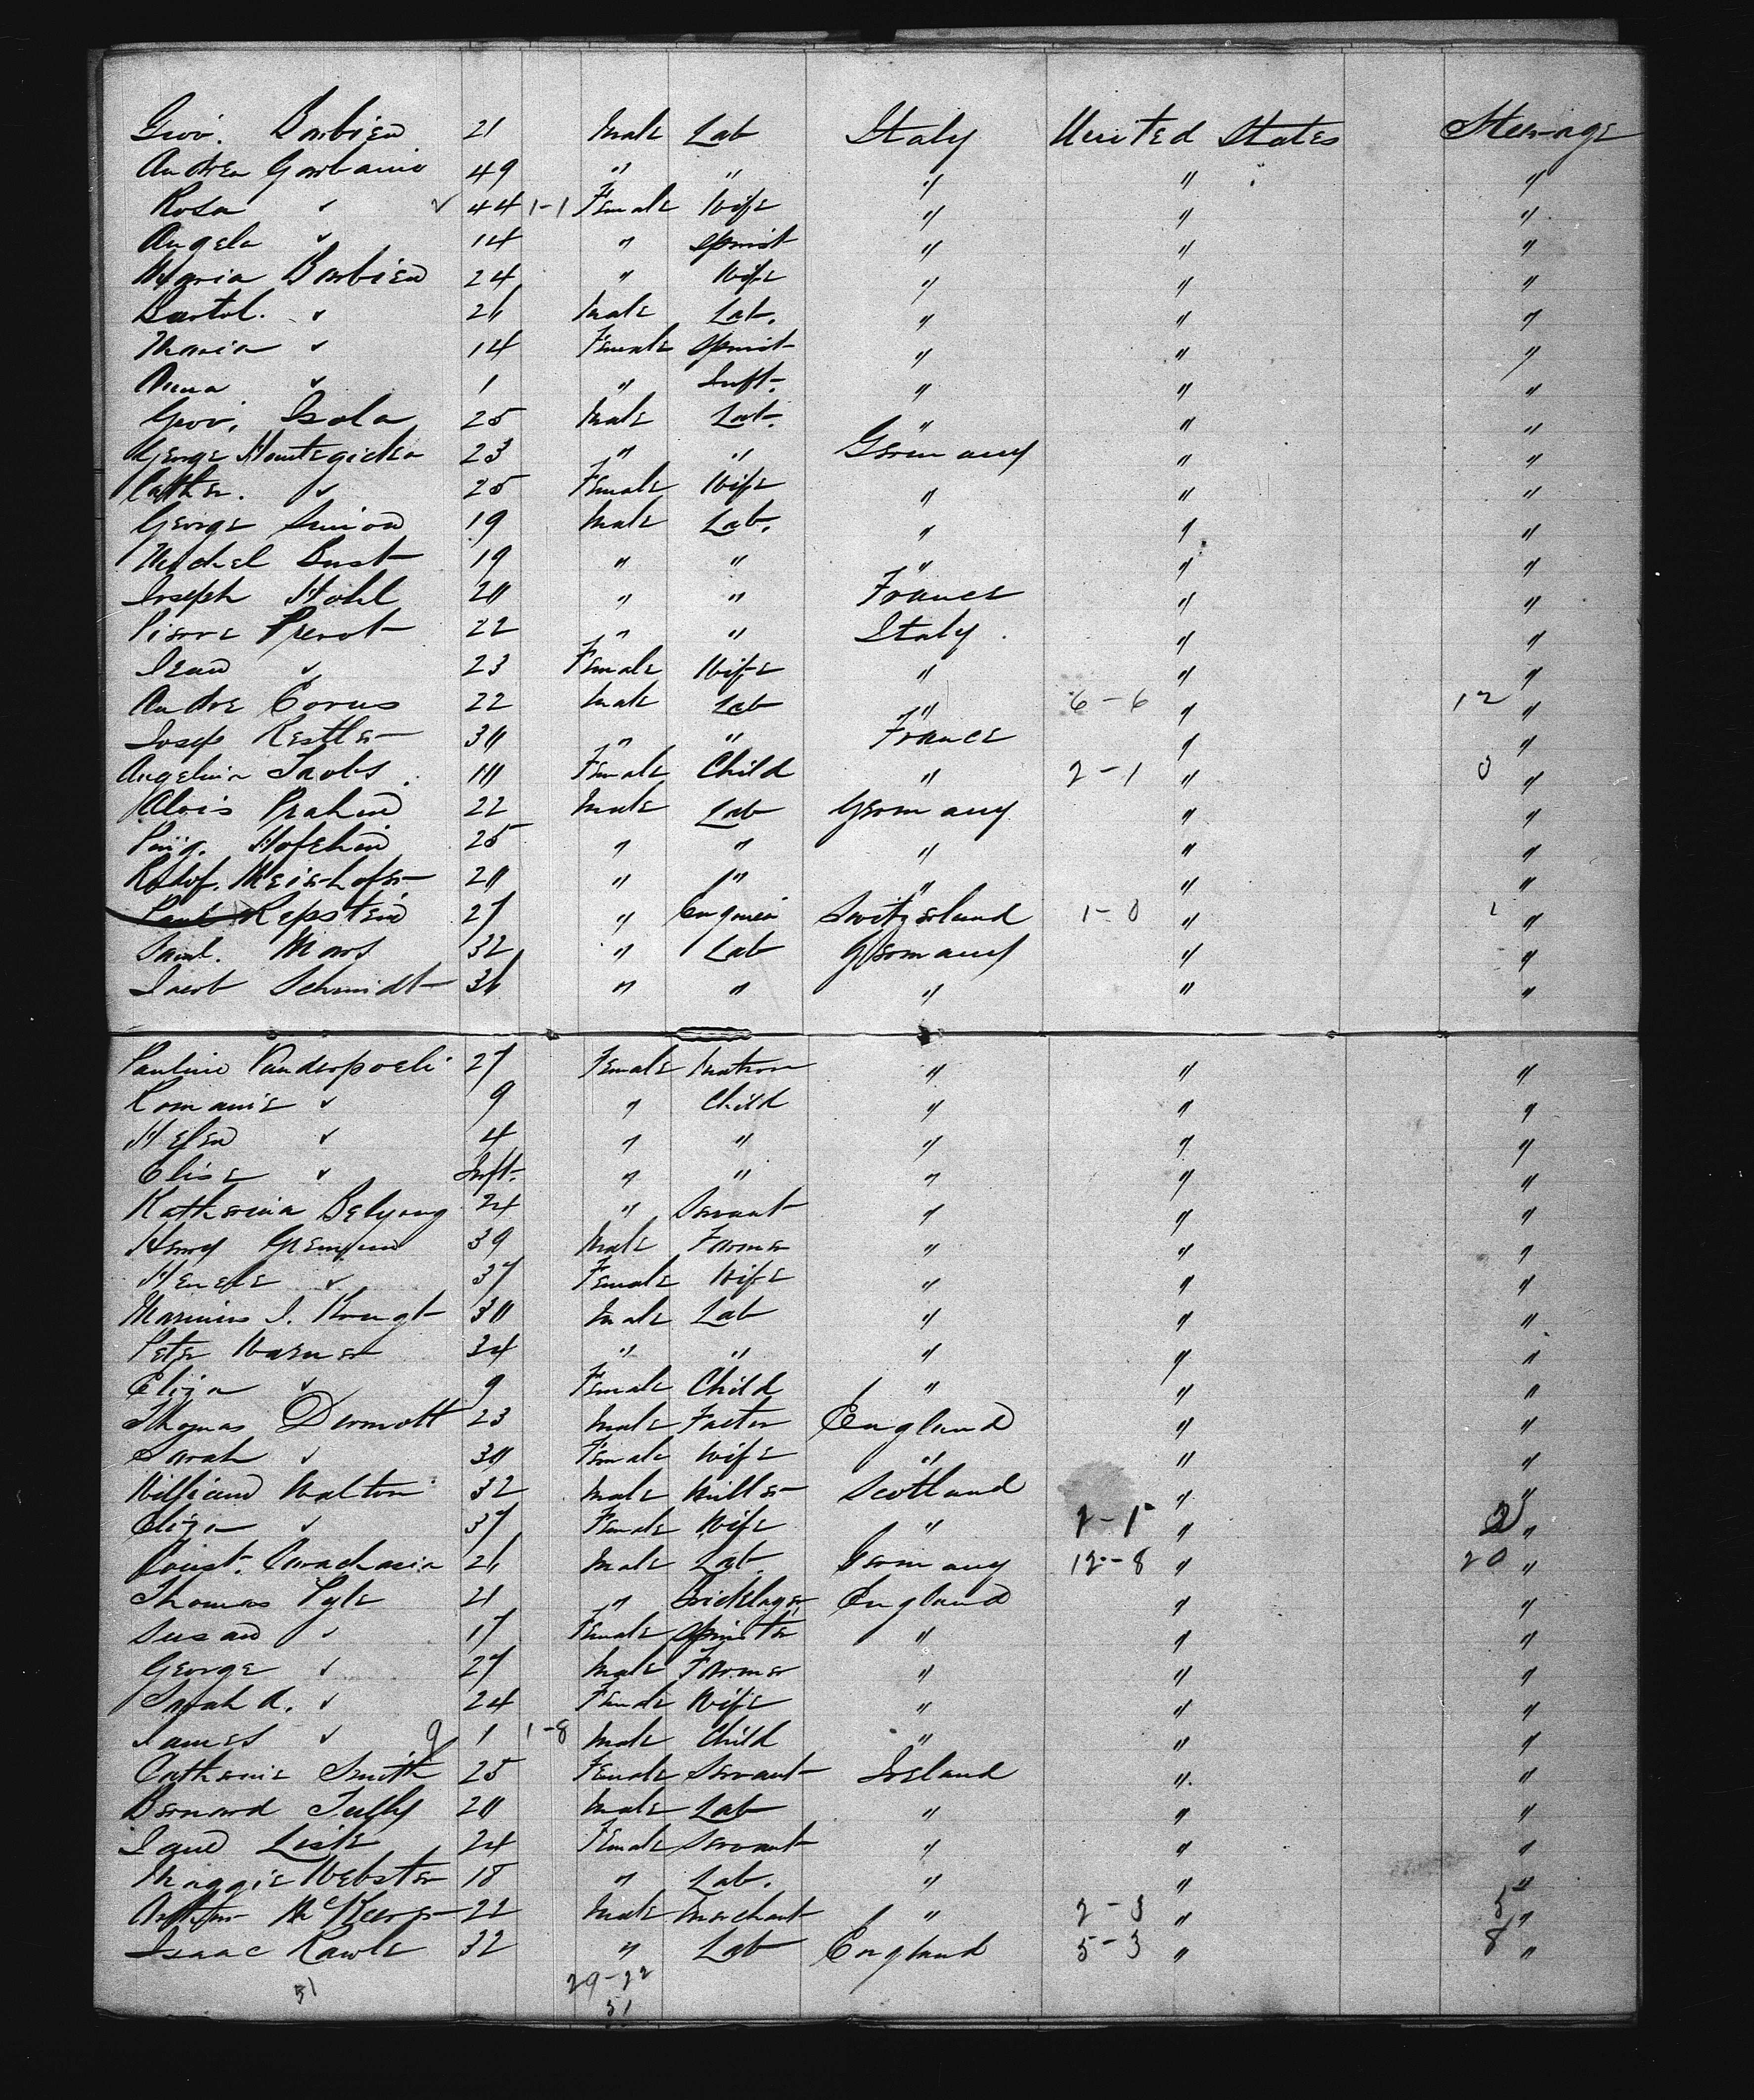 Giov. Barbieu 21 Male Lab Italy United States Steerage
Andrea Garbaino 49 " " " " "
Rosa " 44 1-1 Female Wife " " "
Angela " 14 " Spinst " " "
Maria Barbieu 24 " Wife " " "
Bartol. " 26 Male Lab. " " "
Maria " 14 Female Spinst " " "
Anna " 1 " Inft. " " "
Giov. Isola 25 Male Lab. " " "
George 23 " " Germany " "
Cather. " 25 Female Wife " " "
George Simon 19 Male Lab. " " "
Michel Bust 19 " " " " "
Joseph Hohl 20 " " France " "
Pierre Prevot 22 " " Italy. " "
Jean " 23 Female Wife " " "
Andre Corus 22 Male Lab " 6-6 " 12 "
Josep Kestler 30 " " France " "
Angelina Jacobs. 10 Female Child " 2-1 " 3 "
Alois 22 Male Lab Germany " "
25 " " " " "
Rodof. Meierhofer 20 " " " " "
Paul Repstein 27 " Engineer Switzerland 1-0 " 1 "
Saml. Mars 32 " Lab Germany " "
Jacob Schmidt 36 " " " " "
Pauline Vanderpoeli 27 Female Matron " " "
Romanie " 9 " Child " " "
Helen " 4 " " " " "
Elise " Inft. " " " " "
Katherina Belyong 24 " Servant " " "
Henry 39 Male Farmer " " "
Henele " 37 Female Wife " " "
Marinus J. 30 Male Lab " " "
Peter Warner 34 " " " " "
Eliza " 9 Female Child " " "
Thomas Dermott 23 Male Factor England " "
Sarah " 30 Female Wife " " "
William Walton 32 Male Miller Scotland " "
Eliza " 37 Female Wife " 2-1 " 3 "
26 Male Lab. Germany 12-8 " 20 "
Thomas Pyle 21 " Bricklayer England " "
Susan " 17 Female Spinster " " "
George " 27 Male Farmer " " "
Sarah A. " 24 Female Wife " " "
James " 9 1 1-8 Male Child " " "
Catherine Smith 25 Female Servant Ireland " "
Bernard Tully 20 Male Lab " " "
Jane Lisle 24 Female Servant " " "
Maggie Webster 18 " Lab. " " "
Arthur McKeever 22 Male Merchant " 2-3 " 5 "
Isaac Rawle 32 " Lab England 5-3 " 8 "
51 29-22
51